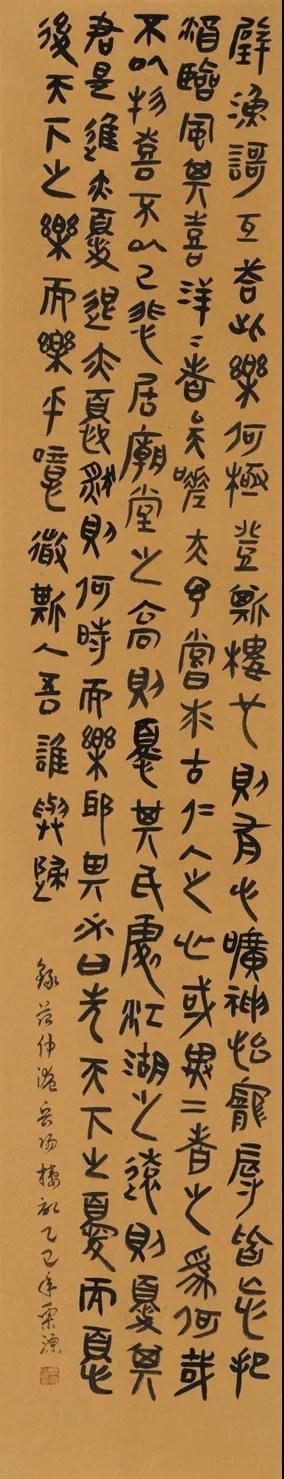 璧漁謌互荅此樂何極登斯樓也則有心曠神怡寵辱皆忘把
酒臨風其喜洋〻者矣嗟夫予嘗求古仁人之心或異二者之為何哉
不以物喜不以己悲居廟堂之高則憂其民處江湖之遠則憂其
君是進亦憂退亦憂然則何時而樂耶其必曰先天下之憂而憂
後天下之樂而樂乎噫微斯人吾誰與歸
錄范仲淹岳陽樓記乙巳年